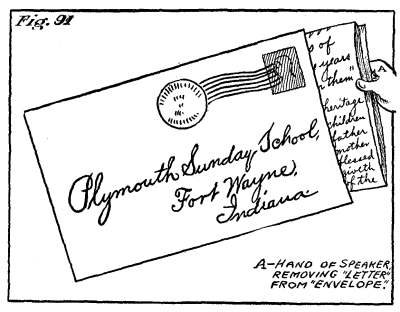 Fig. 91
s of
years
them"
heritage
children
father
mother
blessed
giveth
of the
A
Plymouth Sunday School,
Fort Wayne,
Indiana
A-HAND OF SPEAKER
REMOVING "LETTER"
FROM "ENVELOPE."